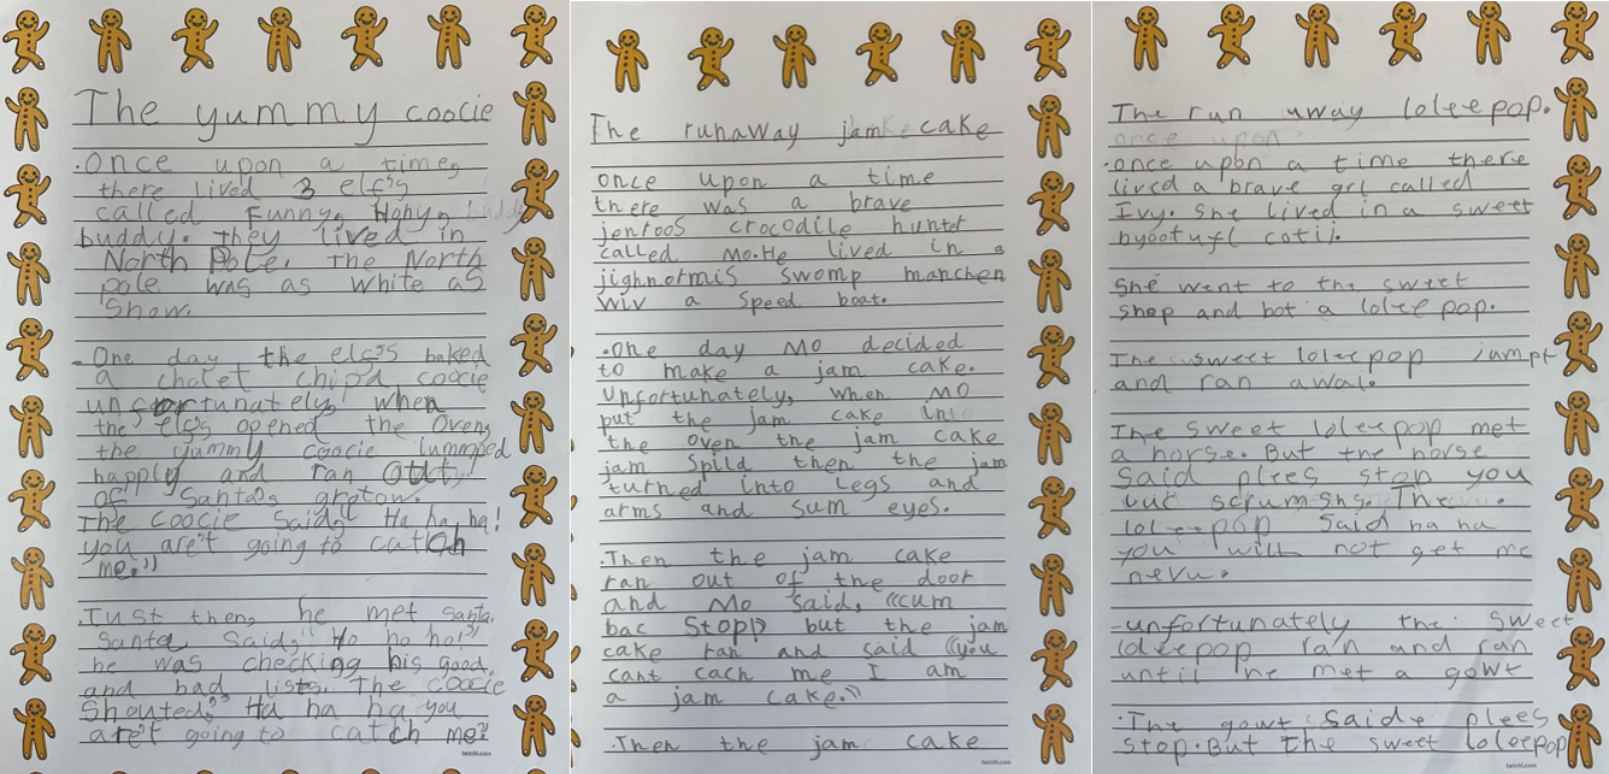 The yummy coocie
.Once upon a time,
there lived 3 elf's
called Funny, Hapy,
buddy. they lived in
North Pole. The North
pole was as white as
Snow.
-One day the elf's baked
a choclet chipd coocie
unfortunately, when
the elf's opened the oven,
the yummy coocie Jummped
happley and ran out
of Santa's grotow.
The coocie said, "Ha ha, ha!
you are't going to catch
me."
.Just then, he met Santa.
Santa said, "Ho ho ho!"
he was checking his good
and bad lists. The coocie
Shouted, "Ha ha ha you
are't going to catch me"
twinkl.com
The runaway jam cake
once upon a time
there was a brave
jentoos crocodile hunter
called Mo. He lived in a
jighnormis swomp manchen
wiv a speed boat.
.One day Mo decided
to make a jam cake.
Unfortunately, when Mo
put the jam cake into
the oven the jam cake
jam Spild then the jam
turned into Legs and
arms and sum eyes.
.Then the jam cake
ran out of the door
and Mo said, "cum
bac Stopp but the jam
cake ran and said "you
cant cach me I am
a jam cake."
.Then the jam cake
twinkl.com
The run away loleepop.
once upon
.once upon a time there
lived a brave grl called
Ivy. she lived in a sweet
byootufl cotij.
She went to the sweet
shop and bot a loleepop.
The sweet loleepop jumpt
and ran awai.
The sweet loleepop met
a horse. But the horse
said plees stop you
luc scrumshs. The
loleepop said ha ha
you will not get me
nevu.
-unfortunately the Sweet
loleepop ran and ran
until he met a gowt
.The gowt said, plees
stop. But the sweet loleepop
twinkl.com